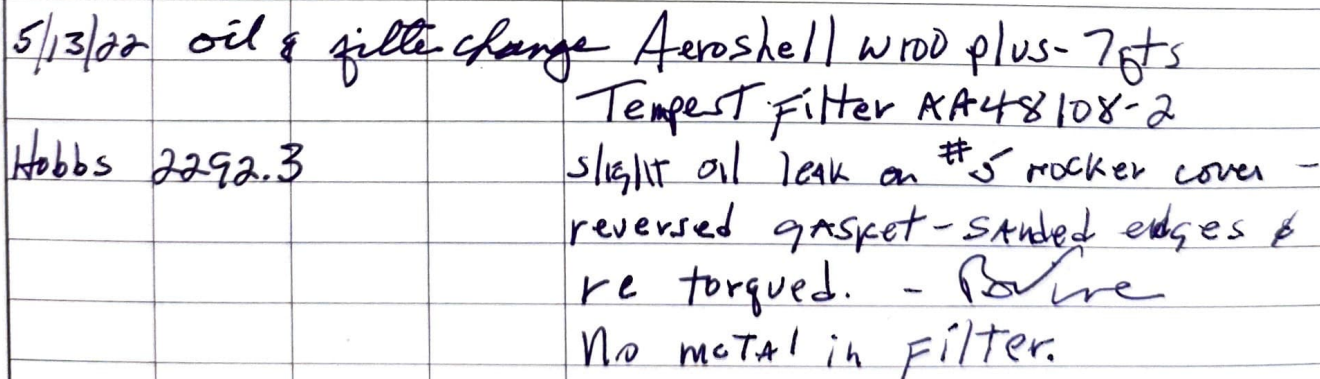 5/13/22 oil & filter change Aeroshell W100 plus - 7qts
Tempest Filter AA48108-2
Hobbs 2292.3 slight oil leak on #5 rocker cover -
reversed gasket - sanded edges &
re torqued. -
No metal in Filter.